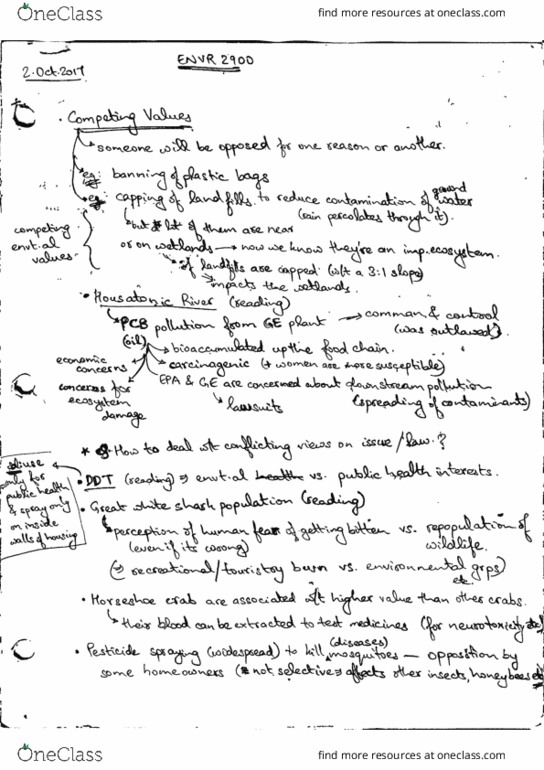 OneClass
find more resources at oneclass.com
ENVR 2900
2.Oct.2017
• Competing Values
someone will be opposed for one reason or another.
eg: banning of plastic bags
eg: capping of landfills to reduce contamination of ground water
(rain percolates through it).
competing
envt.al
values
but lot of them are near
or on wetlands → now we know they're an imp. ecosystem.
if landfills are capped (w/t a 3:1 slope)
impacts the wetlands.
• Housatonic River (reading)
PCB pollution from GE plant → comman & control
(oil)
(was outlawed).
bioaccumulated up the food chain.
economic
concerns
carcinogenic (+ women are more susceptible)
EPA & GE are concerned about downstream pollution
concerns for
ecosystem
damage
lawsuits
(spreading of contaminants)
* How to deal w/t conflicting views on issue/law?
use
only for
public health
& spray only
on inside
walls of housing
• DDT (reading) ⇒ envt.al vs. public health interests.
• Great white shark population (reading)
perception of human fear of getting bitten vs. repopulation of
(even if its wrong)
wildlife.
(⇒ recreational/touristry busn vs. environmental grps)
etc.
• Horseshoe crab are associated w/t higher value than other crabs.
their blood can be extracted to test medicines (for neurotoxicity etc)
(diseases)
• Pesticide spraying (widespread) to kill mosquitoes — opposition by
some homeowners (not selective ⇒ affects other insects, honeybees etc
OneClass
find more resources at oneclass.com